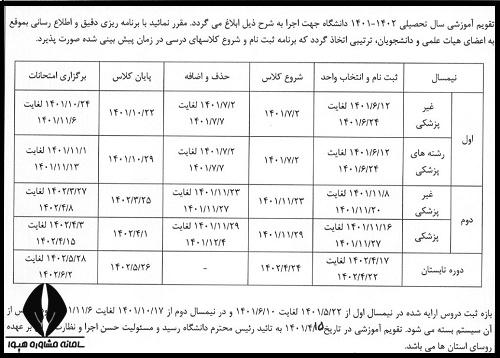 تقویم آموزشی سال تحصیلی ۱۴۰۲-۱۴۰۱ دانشگاه جهت اجرا به شرح ذیل ابلاغ می گردد. مقرر نمائید با برنامه ریزی دقیق و اطلاع رسانی بموقع
به اعضای هیات علمی و دانشجویان، ترتیبی اتخاذ گردد که برنامه ثبت نام و شروع کلاسهای درسی در زمان پیش بینی شده صورت پذیرد.
نیمسال ثبت نام و انتخاب واحد شروع کلاس حذف و اضافه پایان کلاس برگزاری امتحانات
اول غیر پزشکی ۱۴۰۱/۶/۱۲ لغایت ۱۴۰۱/۶/۲۴ ۱۴۰۱/۷/۲ ۱۴۰۱/۷/۲ لغایت ۱۴۰۱/۷/۷ ۱۴۰۱/۱۰/۲۲ ۱۴۰۱/۱۰/۲۴ لغایت ۱۴۰۱/۱۱/۶
رشته های پزشکی ۱۴۰۱/۶/۱۲ لغایت ۱۴۰۱/۶/۲۴ ۱۴۰۱/۷/۲ ۱۴۰۱/۷/۲ لغایت ۱۴۰۱/۷/۷ ۱۴۰۱/۱۰/۲۹ ۱۴۰۱/۱۱/۱ لغایت ۱۴۰۱/۱۱/۱۳
دوم غیر پزشکی ۱۴۰۱/۱۱/۸ لغایت ۱۴۰۱/۱۱/۲۰ ۱۴۰۱/۱۱/۲۳ ۱۴۰۱/۱۱/۲۳ لغایت ۱۴۰۱/۱۱/۲۷ ۱۴۰۲/۳/۲۵ ۱۴۰۲/۳/۲۷ لغایت ۱۴۰۲/۴/۸
پزشکی ۱۴۰۱/۱۱/۱۶ لغایت ۱۴۰۱/۱۱/۲۷ ۱۴۰۱/۱۱/۲۹ ۱۴۰۱/۱۱/۲۹ لغایت ۱۴۰۱/۱۲/۴ ۱۴۰۲/۴/۱ ۱۴۰۲/۴/۳ لغایت ۱۴۰۲/۴/۱۵
دوره تابستان ۱۴۰۲/۴/۱۷ لغایت ۱۴۰۲/۴/۲۲ ۱۴۰۲/۴/۲۴ - ۱۴۰۲/۵/۲۶ ۱۴۰۲/۵/۲۸ لغایت ۱۴۰۲/۶/۲
بازه ثبت دروس ارایه شده در نیمسال اول از ۱۴۰۱/۵/۲۲ لغایت ۱۴۰۱/۶/۱۰ و در نیمسال دوم از ۱۴۰۱/۱۰/۱۷ لغایت ۱۱/۶ از
آن سیستم بسته می شود. تقویم آموزشی در تاریخ به تائید رئیس محترم دانشگاه رسید و مسئولیت حسن اجرا و نظارت بر عهده
روسای استان ها می باشد.
سامانه مشاوره هیوا